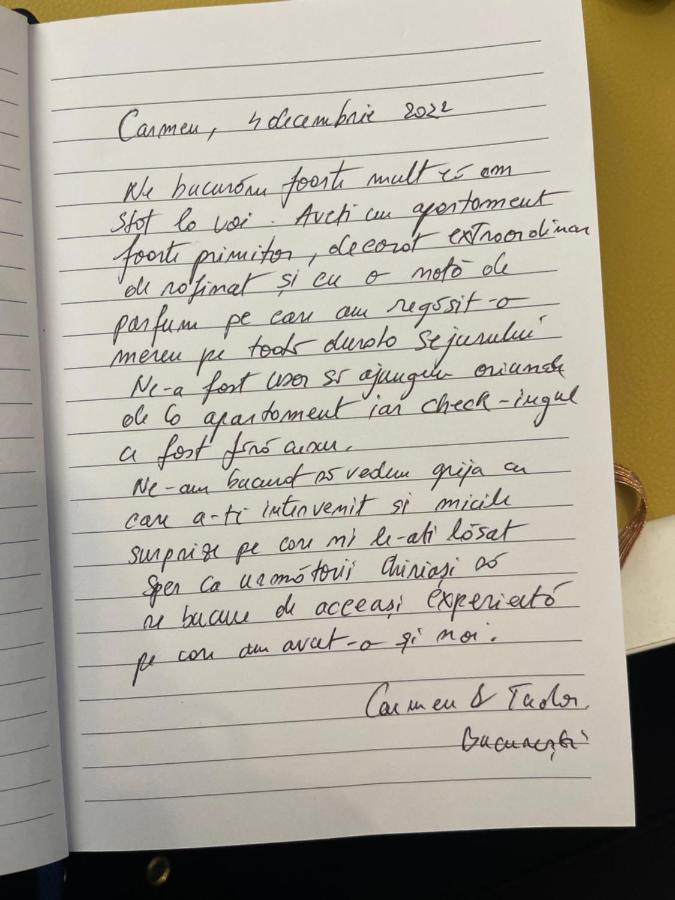 Carmen, 4 decembrie 2022
Ne bucurăm foarte mult că am
stat la voi. Aveti un apartament
foarte primitor, decorat extraordinar
de rafinat și cu o notă de
parfum pe care am regăsit-o
mereu pe toată durata sejurului
Ne-a fost ușor să ajungem oriunde
de la apartament iar check-ingul
a fost fără
Ne-am bucurat să vedem grija cu
care a-ti intervenit si micile
surprize pe care ni le-ati lăsat
Sper ca următorii chiriași să
se bucure de aceeași experiență
pe care am avut-o și noi.
Carmen & Tudor,
București